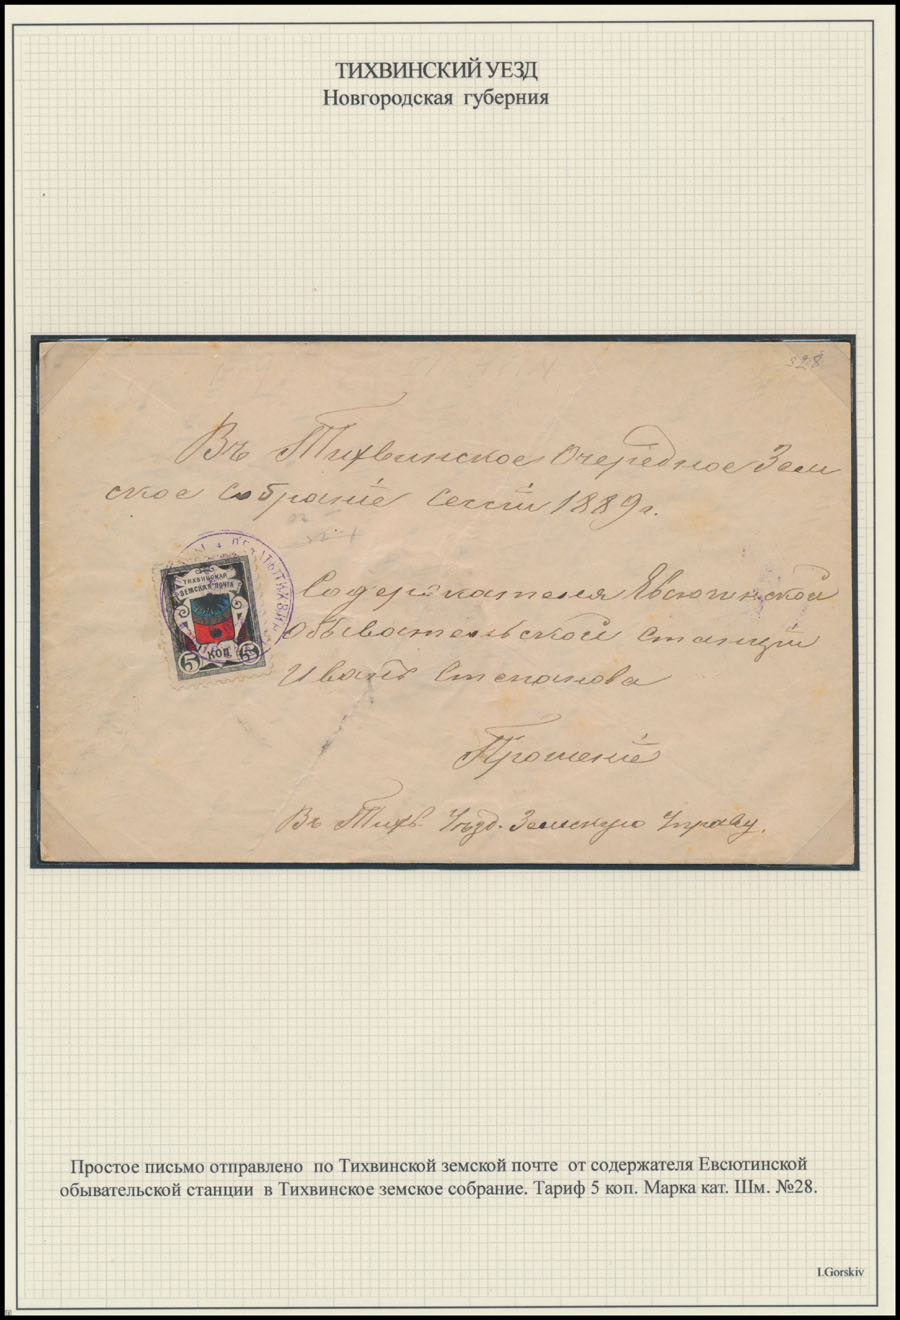 ТИХВИНСКИЙ УЕЗД
Новгородская губерния
528
Въ Тихвинское Очередное Зем
ское Собраніе Сессіи 1889 г.
ТИХВИНСКАЯ
ЗЕМСКАЯ ПОЧТА
5 КОП 5
Содержателя Евсютинской
Обывательской станціи
Иванъ Степанова
Прошеніе
Въ Тихв. Уѣзд. Земскую Управу.
Простое письмо отправлено по Тихвинской земской почте от содержателя Евсютинской
обывательской станции в Тихвинское земское собрание. Тариф 5 коп. Марка кат. Шм. №28.
I.Gorskiv